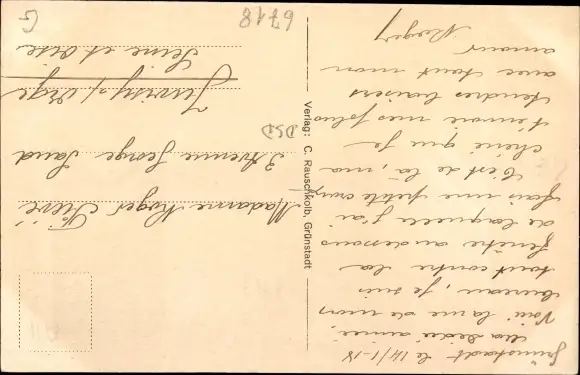 Grünstadt le 14/1-18
ma Dédé aimée,
Voici la vue de mon
bureau, je suis
tout contre la
fenêtre au dessous
de laquelle j'ai
fais une petite croix
C'est de là, ma
chérie que je
t'envoie mes plus
tendres baisers
avec tout mon
amour
Roger
Verlag: C. Rauschkolb, Grünstadt
Madame Roger
3 Avenue George Sand
Juvisy s/ Orge
Seine et Oise
DSD
6718
G